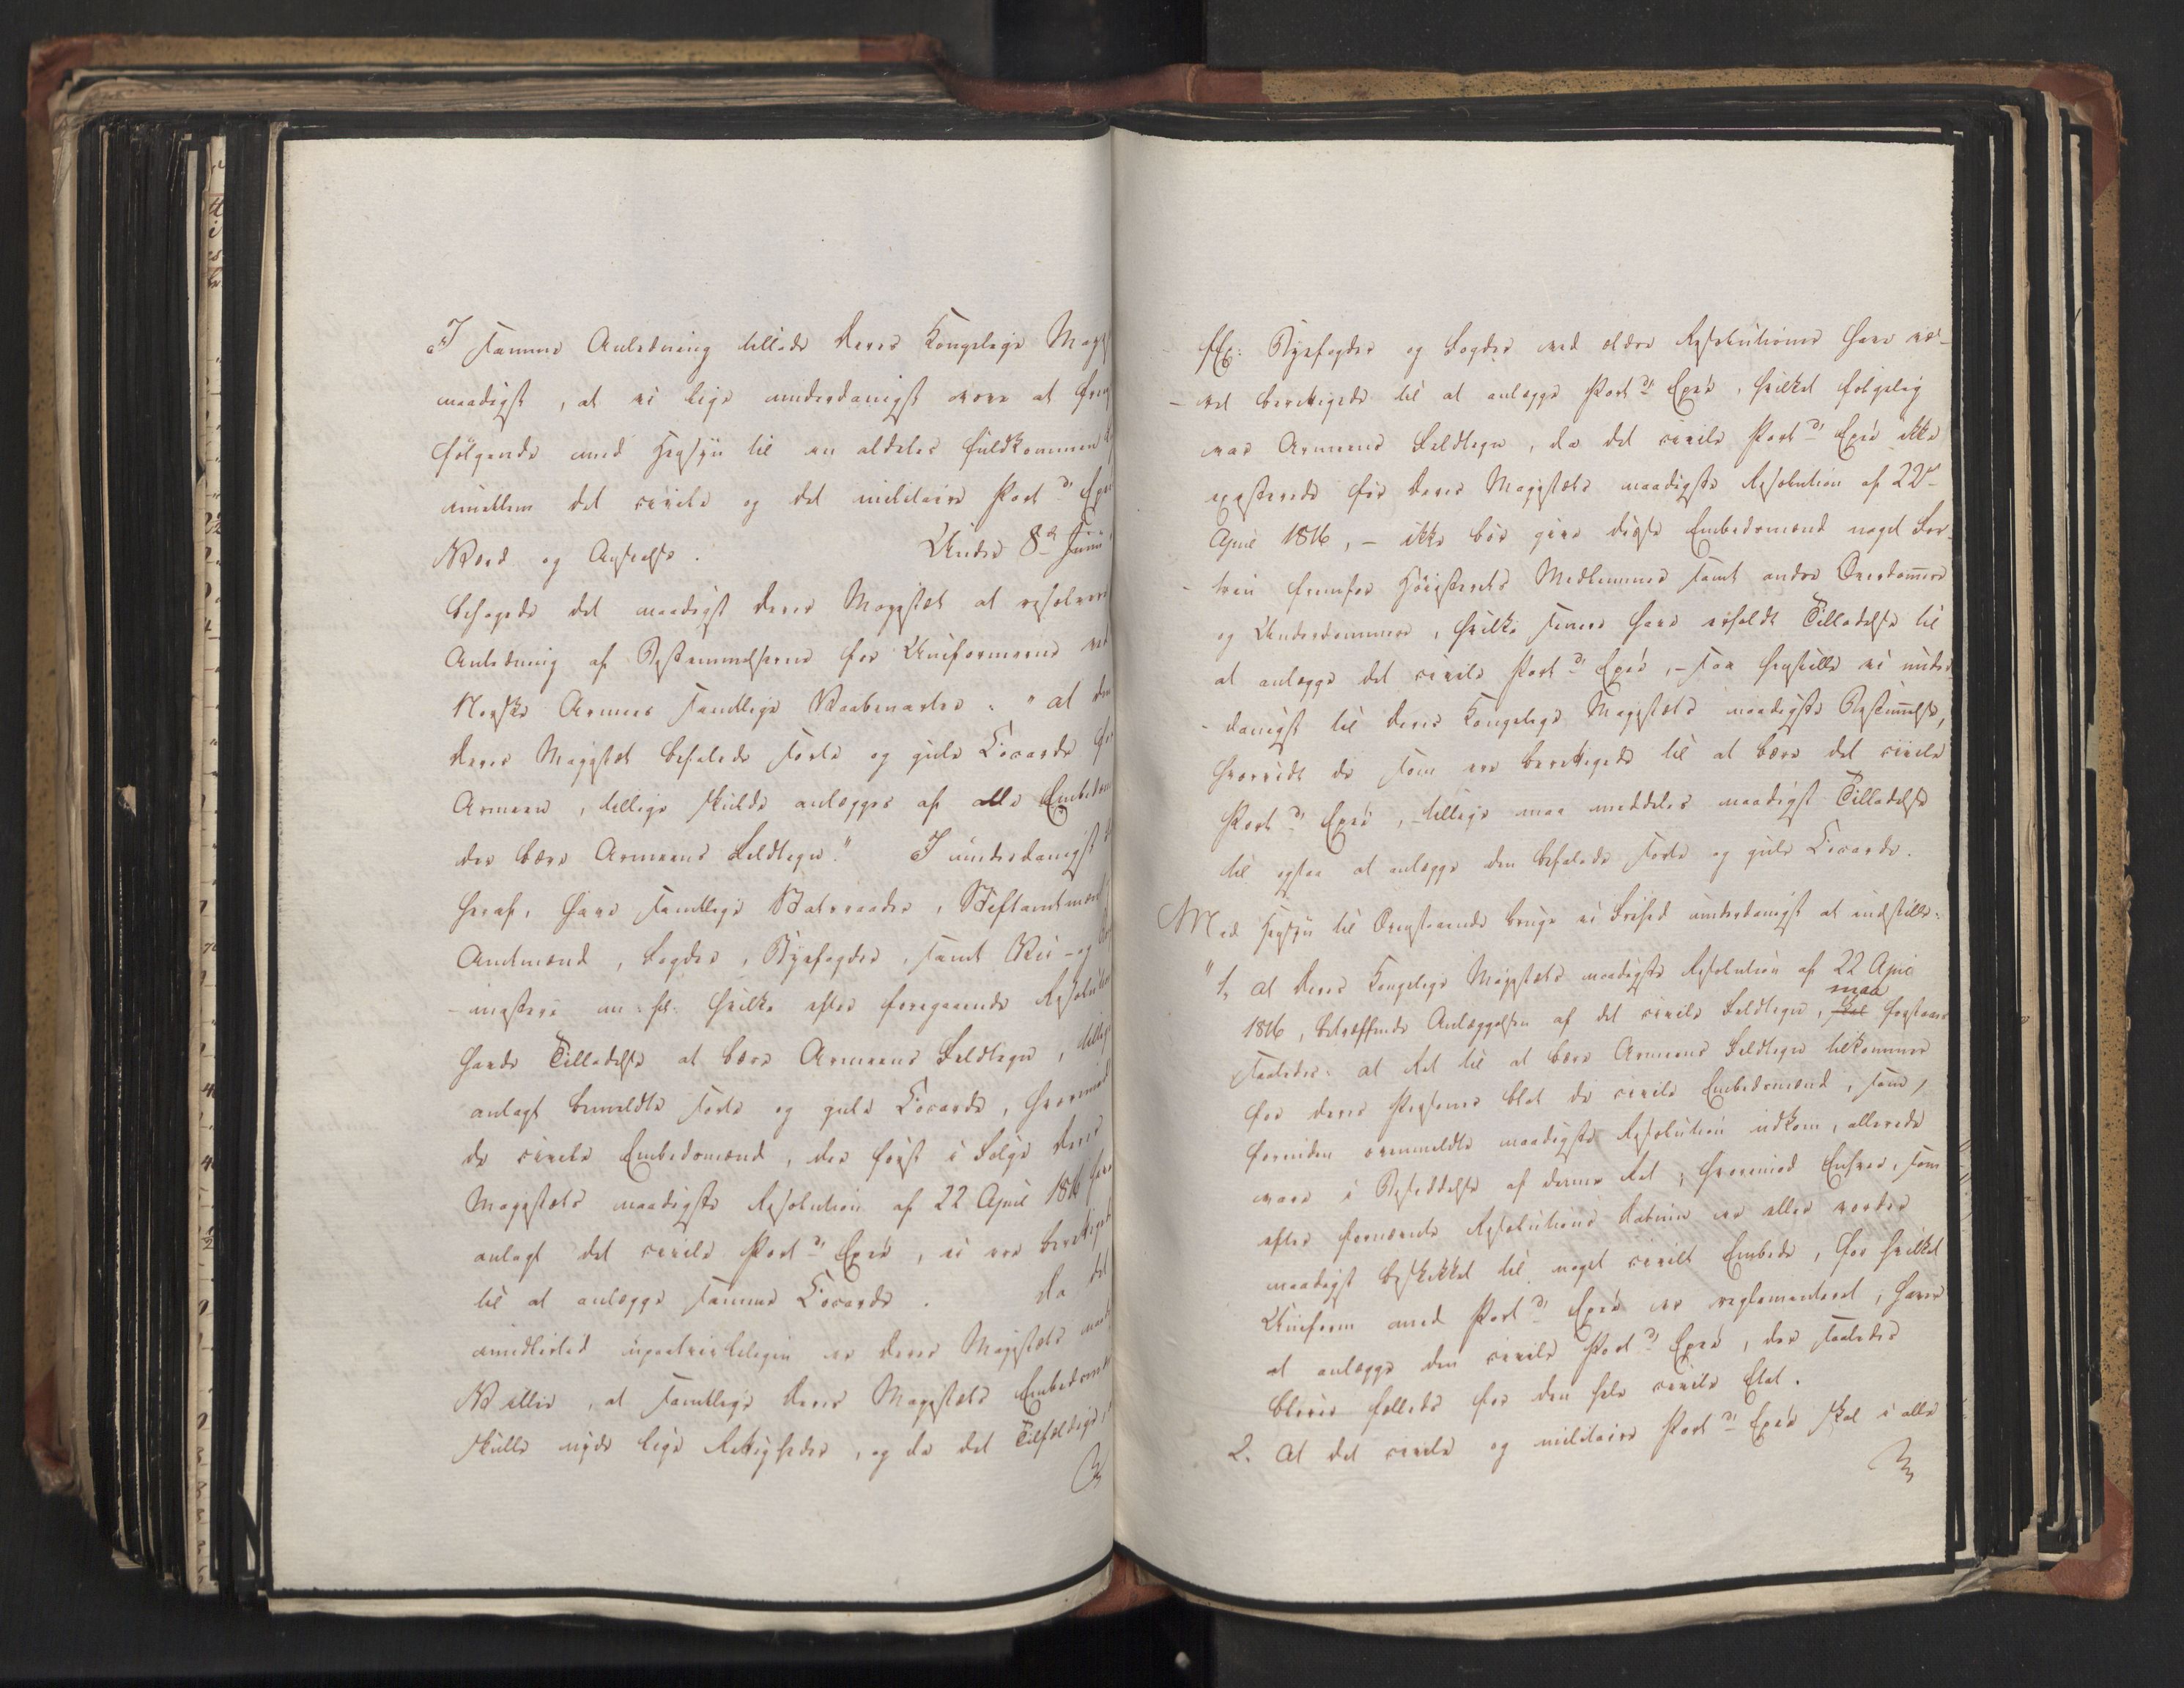 I samme Anledning tillade Deres Kongelige Maj
naadigst, at vi lige underdanigst vove at
følgende med Hensyn til en aldeles fuldkommen
imellem det civile og det militaire Port d' Epée
Værd og Anseelse. Under 8de Juni
behagede det naadigst Deres Majestæt at resolvere
Anledning af Bestemmelserne for Uniformerne ved
Norske Armees samtlige Vaabenarter: "at den
Deres Majestæt befalede sorte og gule Cocarde for
Armeen, tillige skulde anlægges af alle Embedsm
der bære Armeens Feldtegn." I underdanigst
heraf, have samtlige Statsraader, Stiftamtmænd
Amtmænd, Fogder, Byefogder, samt Vei- og
mestere m: fl: hvilke efter foregaaende Resolution
havde Tilladelse at bære Armeens Feldtegn, tillige
anlagt bemeldte sorte og gule Cocarde, hvorimod
de civile Embedsmænd, der først i Følge Deres
Majestæts naadigste Resolution af 22 April 1816 have
anlagt det civile Port d' Epée, ei ere berettigede
til at anlægge samme Cocarde. Da det
imidlertid upaatvivleligen er Deres Majestæts naad
Villie, at samtlige Deres Majestæts Embedsmænd
skulle nyde lige Rettigheder, og da det Tilfældige,
f Ex: Byefogder og Fogder ved ældre Resolutioner have væ-
-ret berettigede til at anlægge Port d' Epée, hvilket følgelig
var Armeens Feldtegn, da det civile Port d' Epée ikke
existerede før Deres Majestæts naadigste Resolution af 22de
April 1816, - ikke bør give disse Embedsmænd noget For-
-trin fremfor Høiesterets Medlemmer samt andre Overdom̅ere
og Underdommere, hvilke senere have erholdt Tilladelse til
at anlægge det civile Port d' Epée, - saa henstille vi under-
-danigst til Deres Kongelige Majestæts naadigste Bestem̅else,
hvorvidt de som ere berettigede til at bære det civile
Port d' Epée, tillige maa meddeles naadigst Tilladelse
til ogsaa at anlægge den befalede sorte og gule Cocarde.
Med Hensyn til Ovenstaaende bruge vi Frihed underdanigst at indstille:
"1, at Deres Kongelige Majestæts naadigste Resolution af 22 April
maa
1816, betræffende Anlæggelsen af det civile Feldtegn, skal forstaaes
saaledes: at Ret til at bære Armeens Feldtegn tilkommer
for deres Personer blot de civile Embedsmænd, som,
forinden ovenmeldte naadigste Resolution udkom, allerede
vare i Besiddelse af denne Ret; hvorimod Enhver, som
efter fornævnte Resolutions Datum er eller vorder
naadigst beskikket til noget civilt Embede, for hvilket
Uniform med Port d' Epée er reglementeret, haver
at anlægge den civile Port d' Epée, der saaledes
bliver fælleds for den hele civile Etat.
2. At det civile og militaire Port d' Epée skal i alle